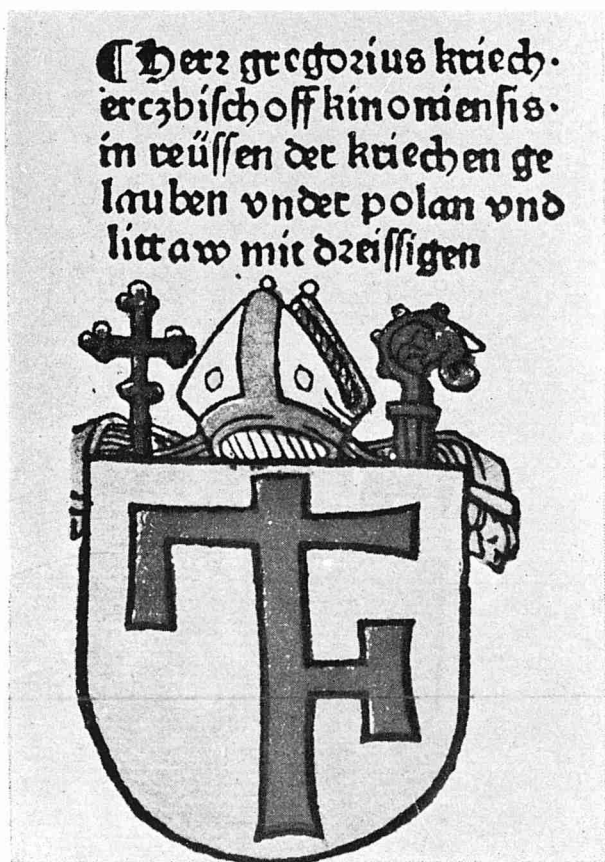 ¶ Herr gregorius kriech·
erczbischoff kinoniensis·
in reüssen der kriechen ge
lauben vnder polan vnd
littaw mit dreissigen